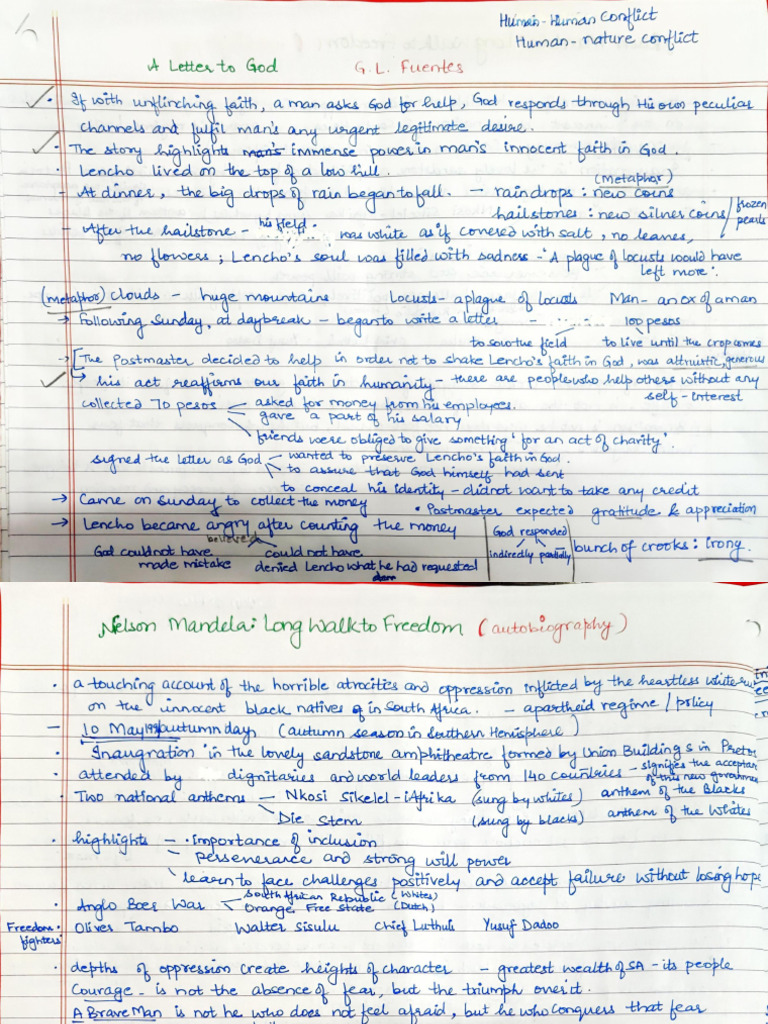 Human-Human Conflict
Human-nature conflict
A Letter to God G.L. Fuentes
• If with unflinching faith, a man asks God for help, God responds through His own peculiar
channels and fulfil man's any urgent legitimate desire.
• The story highlights man's immense power in man's innocent faith in God.
• Lencho lived on the top of a low hill.
(metaphor)
- At dinner, the big drops of rain began to fall. - raindrops : new coins
hailstones : new silver coins / frozen pearls
- After the hailstone - his field was white as if covered with salt, no leaves,
no flowers ; Lencho's soul was filled with sadness - 'A plague of locusts would have
left more'.
(metaphor) clouds - huge mountains Locusts - a plague of locusts Man - an ox of a man
→ Following Sunday, at daybreak - began to write a letter - 100 pesos
to sow the field to live until the crop comes
→ [The Postmaster decided to help in order not to shake Lencho's faith in God, was altruistic, generous
↳ his act reaffirms our faith in humanity - there are people who help others without any
self-interest
collected 70 pesos asked for money from his employees.
gave a part of his salary
friends were obliged to give something 'for an act of charity'.
signed the letter as God - wanted to preserve Lencho's faith in God.
to assure that God himself had sent
to conceal his identity - did not want to take any credit
→ Came on Sunday to collect the money • Postmaster expected gratitude & appreciation
→ Lencho became angry after counting the money
believed
God could not have made mistake
could not have denied Lencho what he had requested
God responded
indirectly partially
bunch of crooks : Irony.
Nelson Mandela: Long Walk to Freedom (autobiography)
• a touching account of the horrible atrocities and oppression inflicted by the heartless white
on the innocent black natives of in South Africa. - apartheid regime / policy
- 10 May 1994 autumn day (autumn season in Southern Hemisphere)
• Inaugration in the lovely sandstone amphitheatre formed by Union Buildings in Pretor
• attended by dignitaries and world leaders from 140 countries - signifies the acceptan
of this new governme
• Two national anthems - Nkosi Sikelel-iAfrika (sung by whites) anthem of the Blacks
Die Stem (sung by blacks) anthem of the Whites
• highlights - • importance of inclusion
perseverance and strong will power
learn to face challenges positively and accept failure without losing hope
• Anglo Boer War South African Republic (Whites)
Orange Free State (Dutch)
Freedom fighters • Oliver Tambo Walter Sisulu Chief Luthuli Yusuf Dadoo
• depths of oppression create heights of character - greatest wealth of SA - its people
Courage - is not the absence of fear, but the triumph over it.
A Brave Man is not he who does not feel afraid, but he who conquers that fear